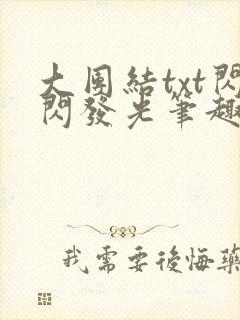 大圄結txt閃
閃發光筆趣
我需要後悔藥